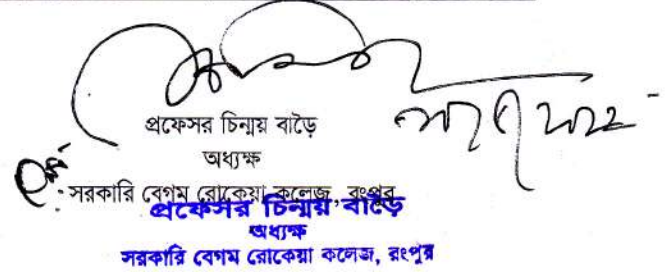 প্রফেসর চিন্ময় বাড়ৈ
অধ্যক্ষ
সরকারি বেগম রোকেয়া কলেজ, রংপুর
প্রফেসর চিন্ময় বাড়ৈ
অধ্যক্ষ
সরকারি বেগম রোকেয়া কলেজ, রংপুর